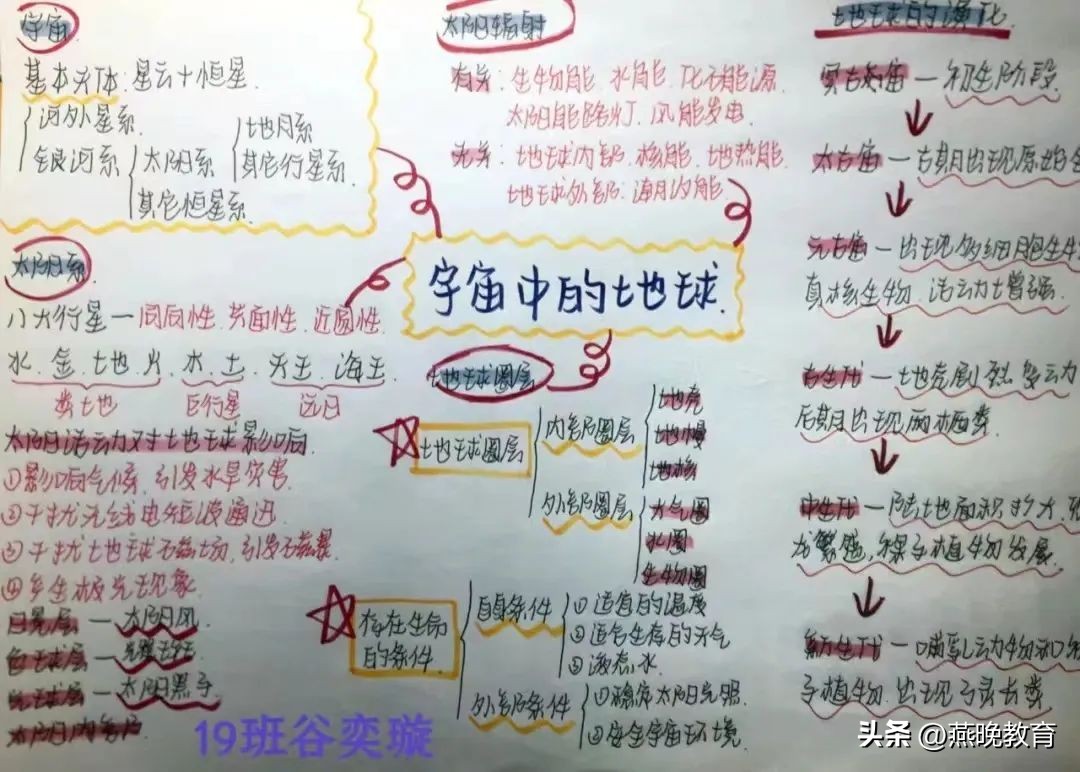 宇宙
基本天体:星云+恒星.
河外星系.
银河系
太阳系
其它恒星系.
地月系
其它行星系.
太阳辐射
有关:生物能.水能.化石能源.
太阳能路灯.风能发电.
无关:地球内部:核能.地热能.
地球外部:潮汐能.
地球的演化
冥古宙—初生阶段
太古宙—后期出现原始
元古宙—出现多细胞生
真核生物.活动力增强.
古生代—地壳剧烈变动
后期出现两栖类.
中生代—陆地面积扩大.
龙繁盛,裸子植物发展.
新生代—哺乳动物和
子植物.出现了灵长类
宇宙中的地球.
太阳系
八大行星—同向性.共面性.近圆性.
水.金.地.火.木.土.天王.海王.
类地
巨行星
远日
太阳活动对地球影响
①影响气候,引发水旱灾害.
②干扰无线电短波通迅
③干扰地球磁场,引发磁暴.
④产生极光现象.
日冕层—太阳风
色球层—
光球层—太阳黑子
太阳内部
地球圈层
地球圈层
内部圈层
地壳
地幔
地核
外部圈层
大气圈
水圈
生物圈
存在生命
的条件.
自身条件
①适宜的温度
②适合生存的大气
③液态水
外部条件
①稳定太阳光照.
②安全宇宙环境.
19班谷奕璇
头条 @燕晚教育